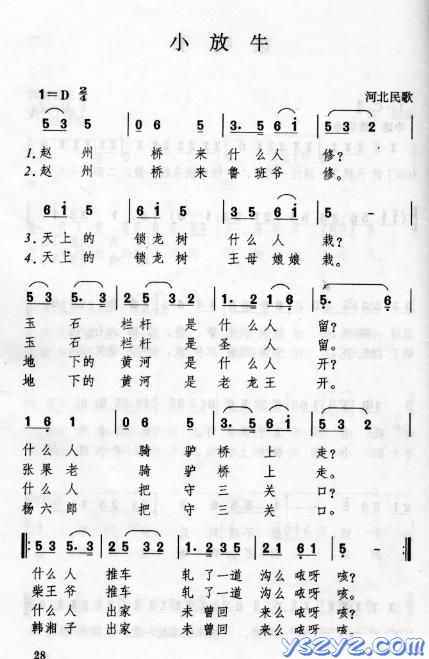 小放牛
1=D 2/4
河北民歌
5 3 5 | 0 6 5 | 3. 5 6 i | 5 3 2 |
1.赵州 桥来 什么人 修?
2.赵州 桥来 鲁班爷 修。
6 i 5
5 - |
3.天上的 锁龙树 什么人 栽?
4.天上的 锁龙树 王母娘娘 栽。
5 3 5. 3 | 2 5 3 2 | 1. 2 1 6 | 5. 6 |
玉石 栏杆 是什么人 留?
玉石 栏杆 是圣人 留。
地下的 黄河 是什么人 开?
地下的 黄河 是老龙王 开。
1 6 1 | 0 6 5 | 3. 5 6 i | 5 3 2 |
什么人 骑驴桥上 走?
张果老 骑驴桥上 走。
什么人 把守三关 口?
杨六郎 把守三关 口。
5 3 5. 3 | 2 5 3 2 | 1. 2 3 5 | 2 1 6 1 | 5. -
什么人 推车 轧了一道 沟么咴呀 咳?
柴王爷 推车 轧了一道 沟么咴呀 咳。
什么人 出家 未曾回 来么咴呀 咳?
韩湘子 出家 未曾回 来么咴呀 咳。
28
yszyz.com